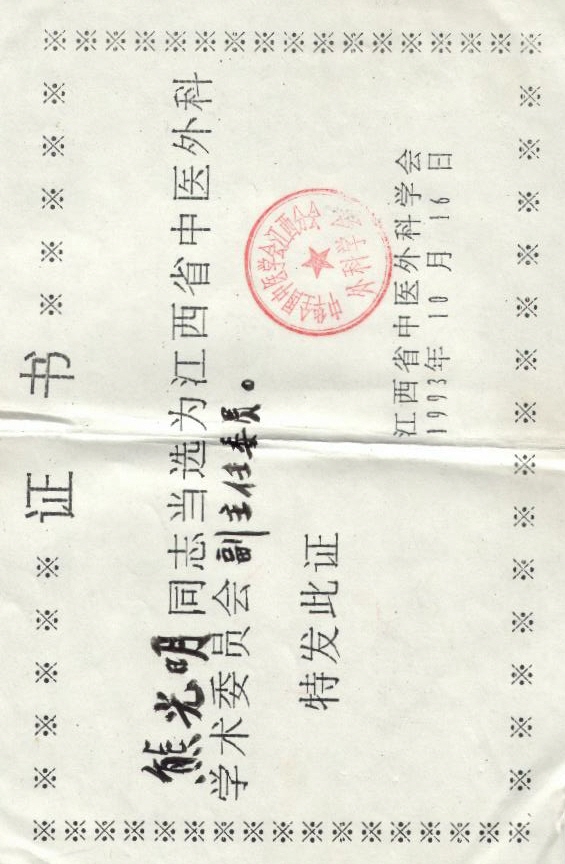 证书
熊光明同志当选为江西省中医外科
学术委员会副主任委员。
特发此证
中华全国中医学会江西分会
外科学会
江西省中医外科学会
1993年10月16日